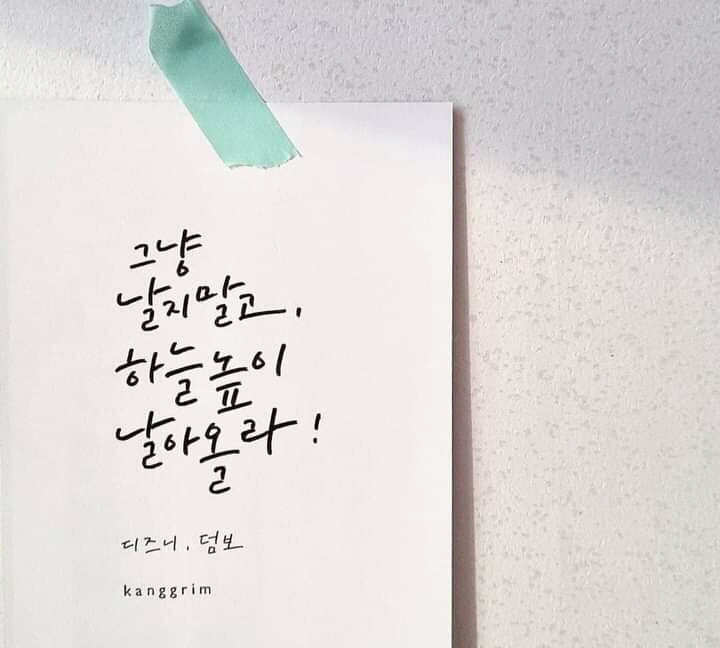 그냥
날지말고,
하늘높이
날아올라!
디즈니, 덤보
kanggrim